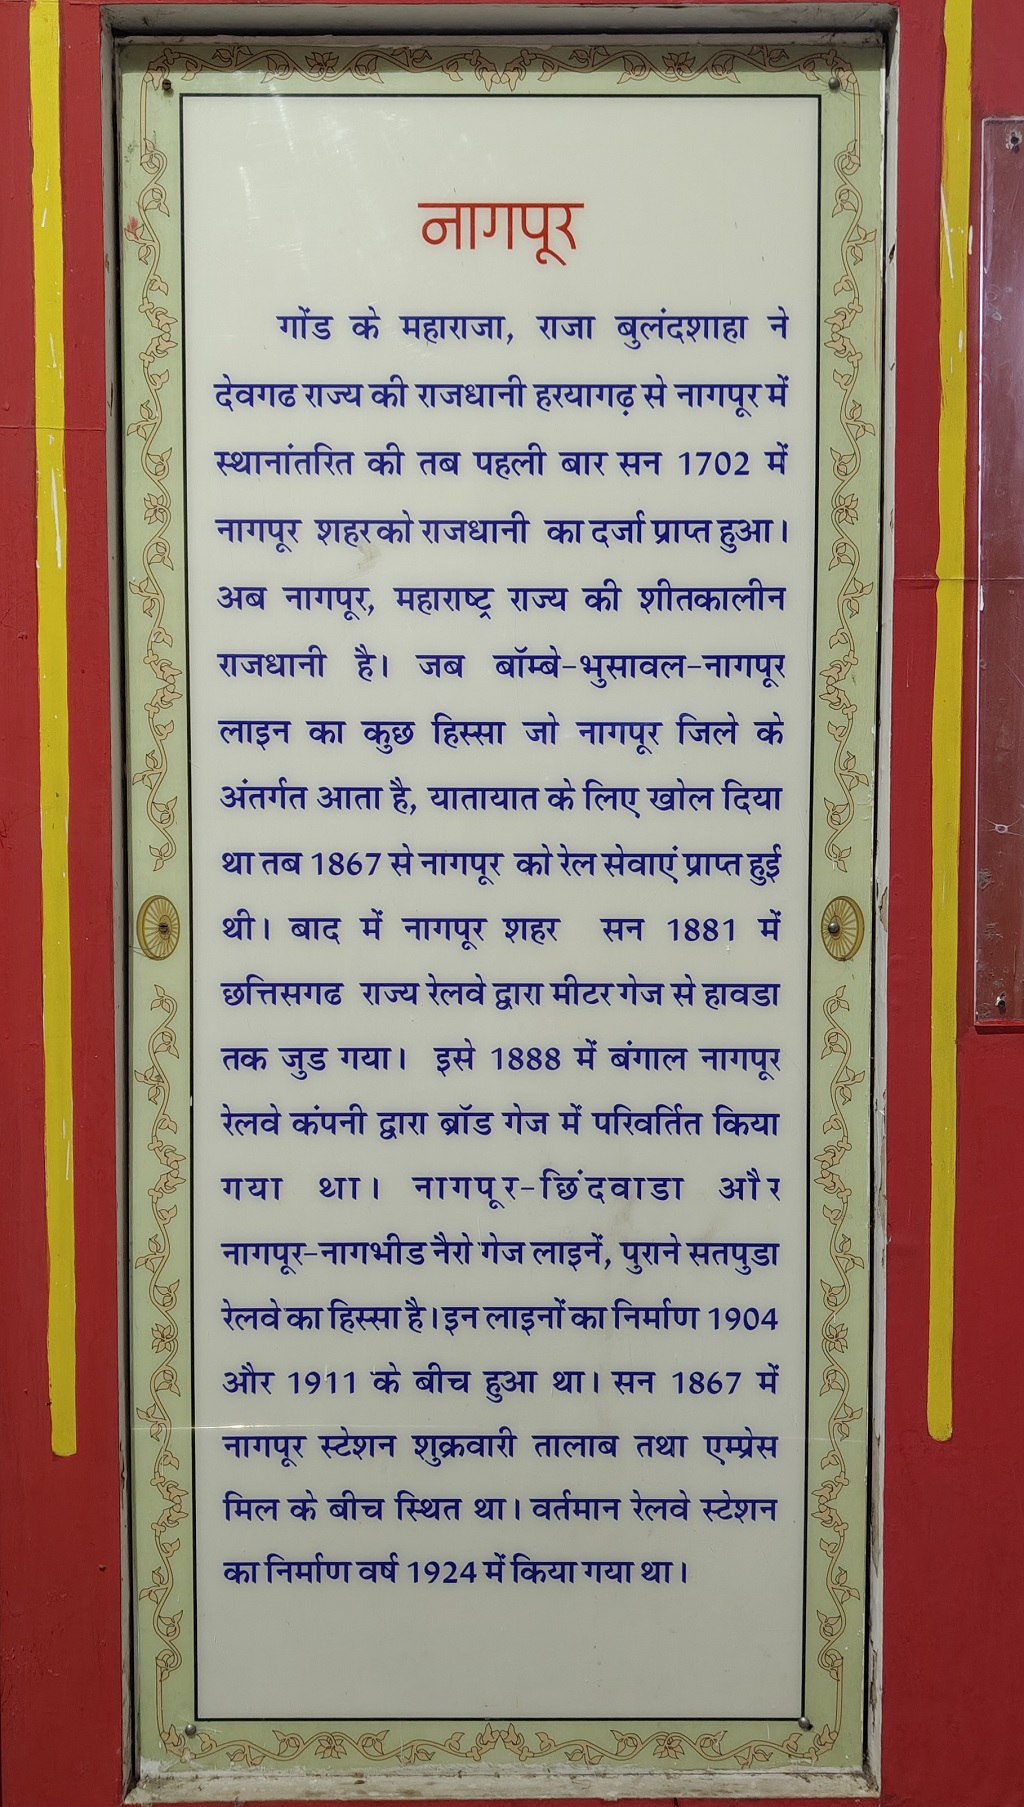 नागपूर
गोंड के महाराजा, राजा बुलंदशाहा ने
देवगढ राज्य की राजधानी हरयागढ़ से नागपूर में
स्थानांतरित की तब पहली बार सन 1702 में
नागपूर शहरको राजधानी का दर्जा प्राप्त हुआ।
अब नागपूर, महाराष्ट्र राज्य की शीतकालीन
राजधानी है। जब बॉम्बे-भुसावल-नागपूर
लाइन का कुछ हिस्सा जो नागपूर जिले के
अंतर्गत आता है, यातायात के लिए खोल दिया
था तब 1867 से नागपूर को रेल सेवाएं प्राप्त हुई
थी। बाद में नागपूर शहर सन 1881 में
छत्तिसगढ राज्य रेलवे द्वारा मीटर गेज से हावडा
तक जुड गया। इसे 1888 में बंगाल नागपूर
रेलवे कंपनी द्वारा ब्रॉड गेज में परिवर्तित किया
गया था। नागपूर-छिंदवाडा और
नागपूर-नागभीड नैरो गेज लाइनें, पुराने सतपुडा
रेलवे का हिस्सा है। इन लाइनों का निर्माण 1904
और 1911 के बीच हुआ था। सन 1867 में
नागपूर स्टेशन शुक्रवारी तालाब तथा एम्प्रेस
मिल के बीच स्थित था। वर्तमान रेलवे स्टेशन
का निर्माण वर्ष 1924 में किया गया था।